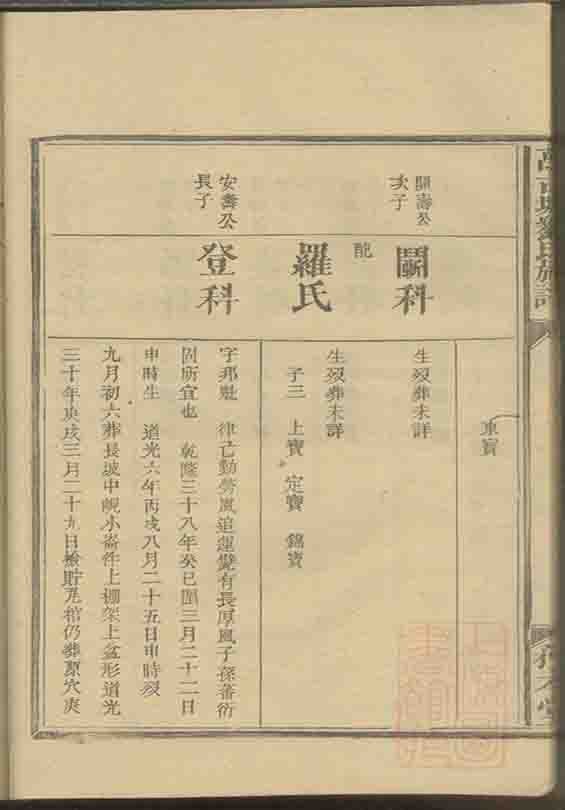 車寶
開壽公
次子
鬭科
生歿葬未詳
配
羅氏
生歿葬未詳
子三 上寶 定寶 錦寶
安壽公
長子
登科
字邦魁 律己勤勞風追運甓有長厚風子孫蕃衍
固所宜也 乾隆三十八年癸巳閏三月二十二日
申時生 道光六年丙戌八月二十五日申時歿
九月初六葬長坡中峴小崙仵上棚架上盆形道光
三十年庚戌三月二十九日檢貯瓦棺仍葬原穴爽